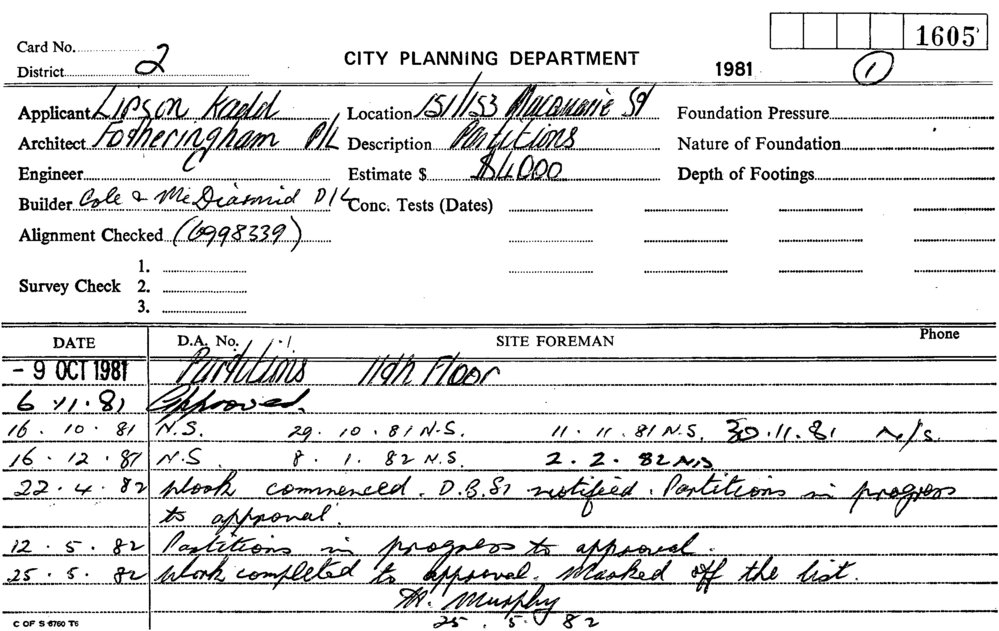 1605
Card No. 2
CITY PLANNING DEPARTMENT
District
1981 1
Applicant Lipson Kadd Location 151/153 Macquarie St Foundation Pressure
Architect Fotheringham P/L Description Partitions Nature of Foundation
Engineer Estimate $ $4000 Depth of Footings
Builder Cole & McDiarmid P/L Conc. Tests (Dates)
Alignment Checked (6998339)
1.
Survey Check 2.
3.
DATE D.A. No. SITE FOREMAN Phone
- 9 OCT 1981 Partitions 11th Floor
6 . 11 . 81 Approved.
16 . 10 . 81 N.S. 29 . 10 . 81 N.S. 11 . 11 . 81 N.S. 30 . 11 . 81 N/S.
16 . 12 . 81 N.S. 8 . 1 . 82 N.S. 2 . 2 . 82 N.S
22 . 4 . 82 Work commenced. D.B.S1 notified. Partitions in progress
to approval.
12 . 5 . 82 Partitions in progress to approval.
25 . 5 . 82 Work completed to approval. Marked off the list.
M. Murphy
25 . 5 . 82
C OF S 6760 T6